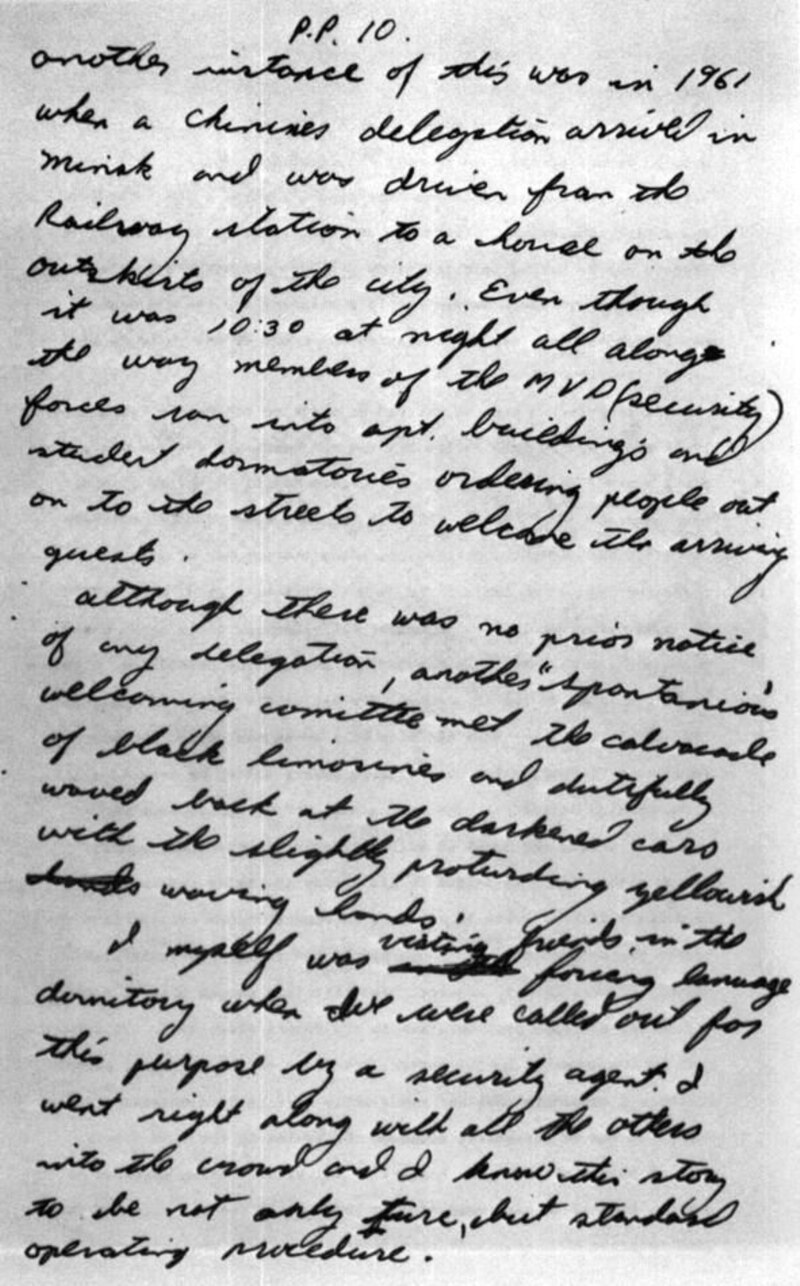 P.P. 10.
another instance of this was in 1961
when a chinines delegation arrived in
Minsk and was driven from the
Railway station to a house on the
outskirts of the city. Even though
it was 10:30 at night all along
the way members of the MVD (security)
forces ran into apt. buildings and
student dormatories ordering people out
on to the streets to welcome the arriving
guests.
although there was no prior notice
of any delegation, another "spontanious"
welcoming comittte met the calvacade
of black limosines and dutifully
waved back at the darkened cars
with the slightly proturding yellowish
waving hands.
I myself was visting friends in the
foriang lanuage
dormitory when we were called out for
this purpose by a security agent. I
went right along with all the others
into the crowd and I know this story
to be not only ture, but standard
operating procedure.